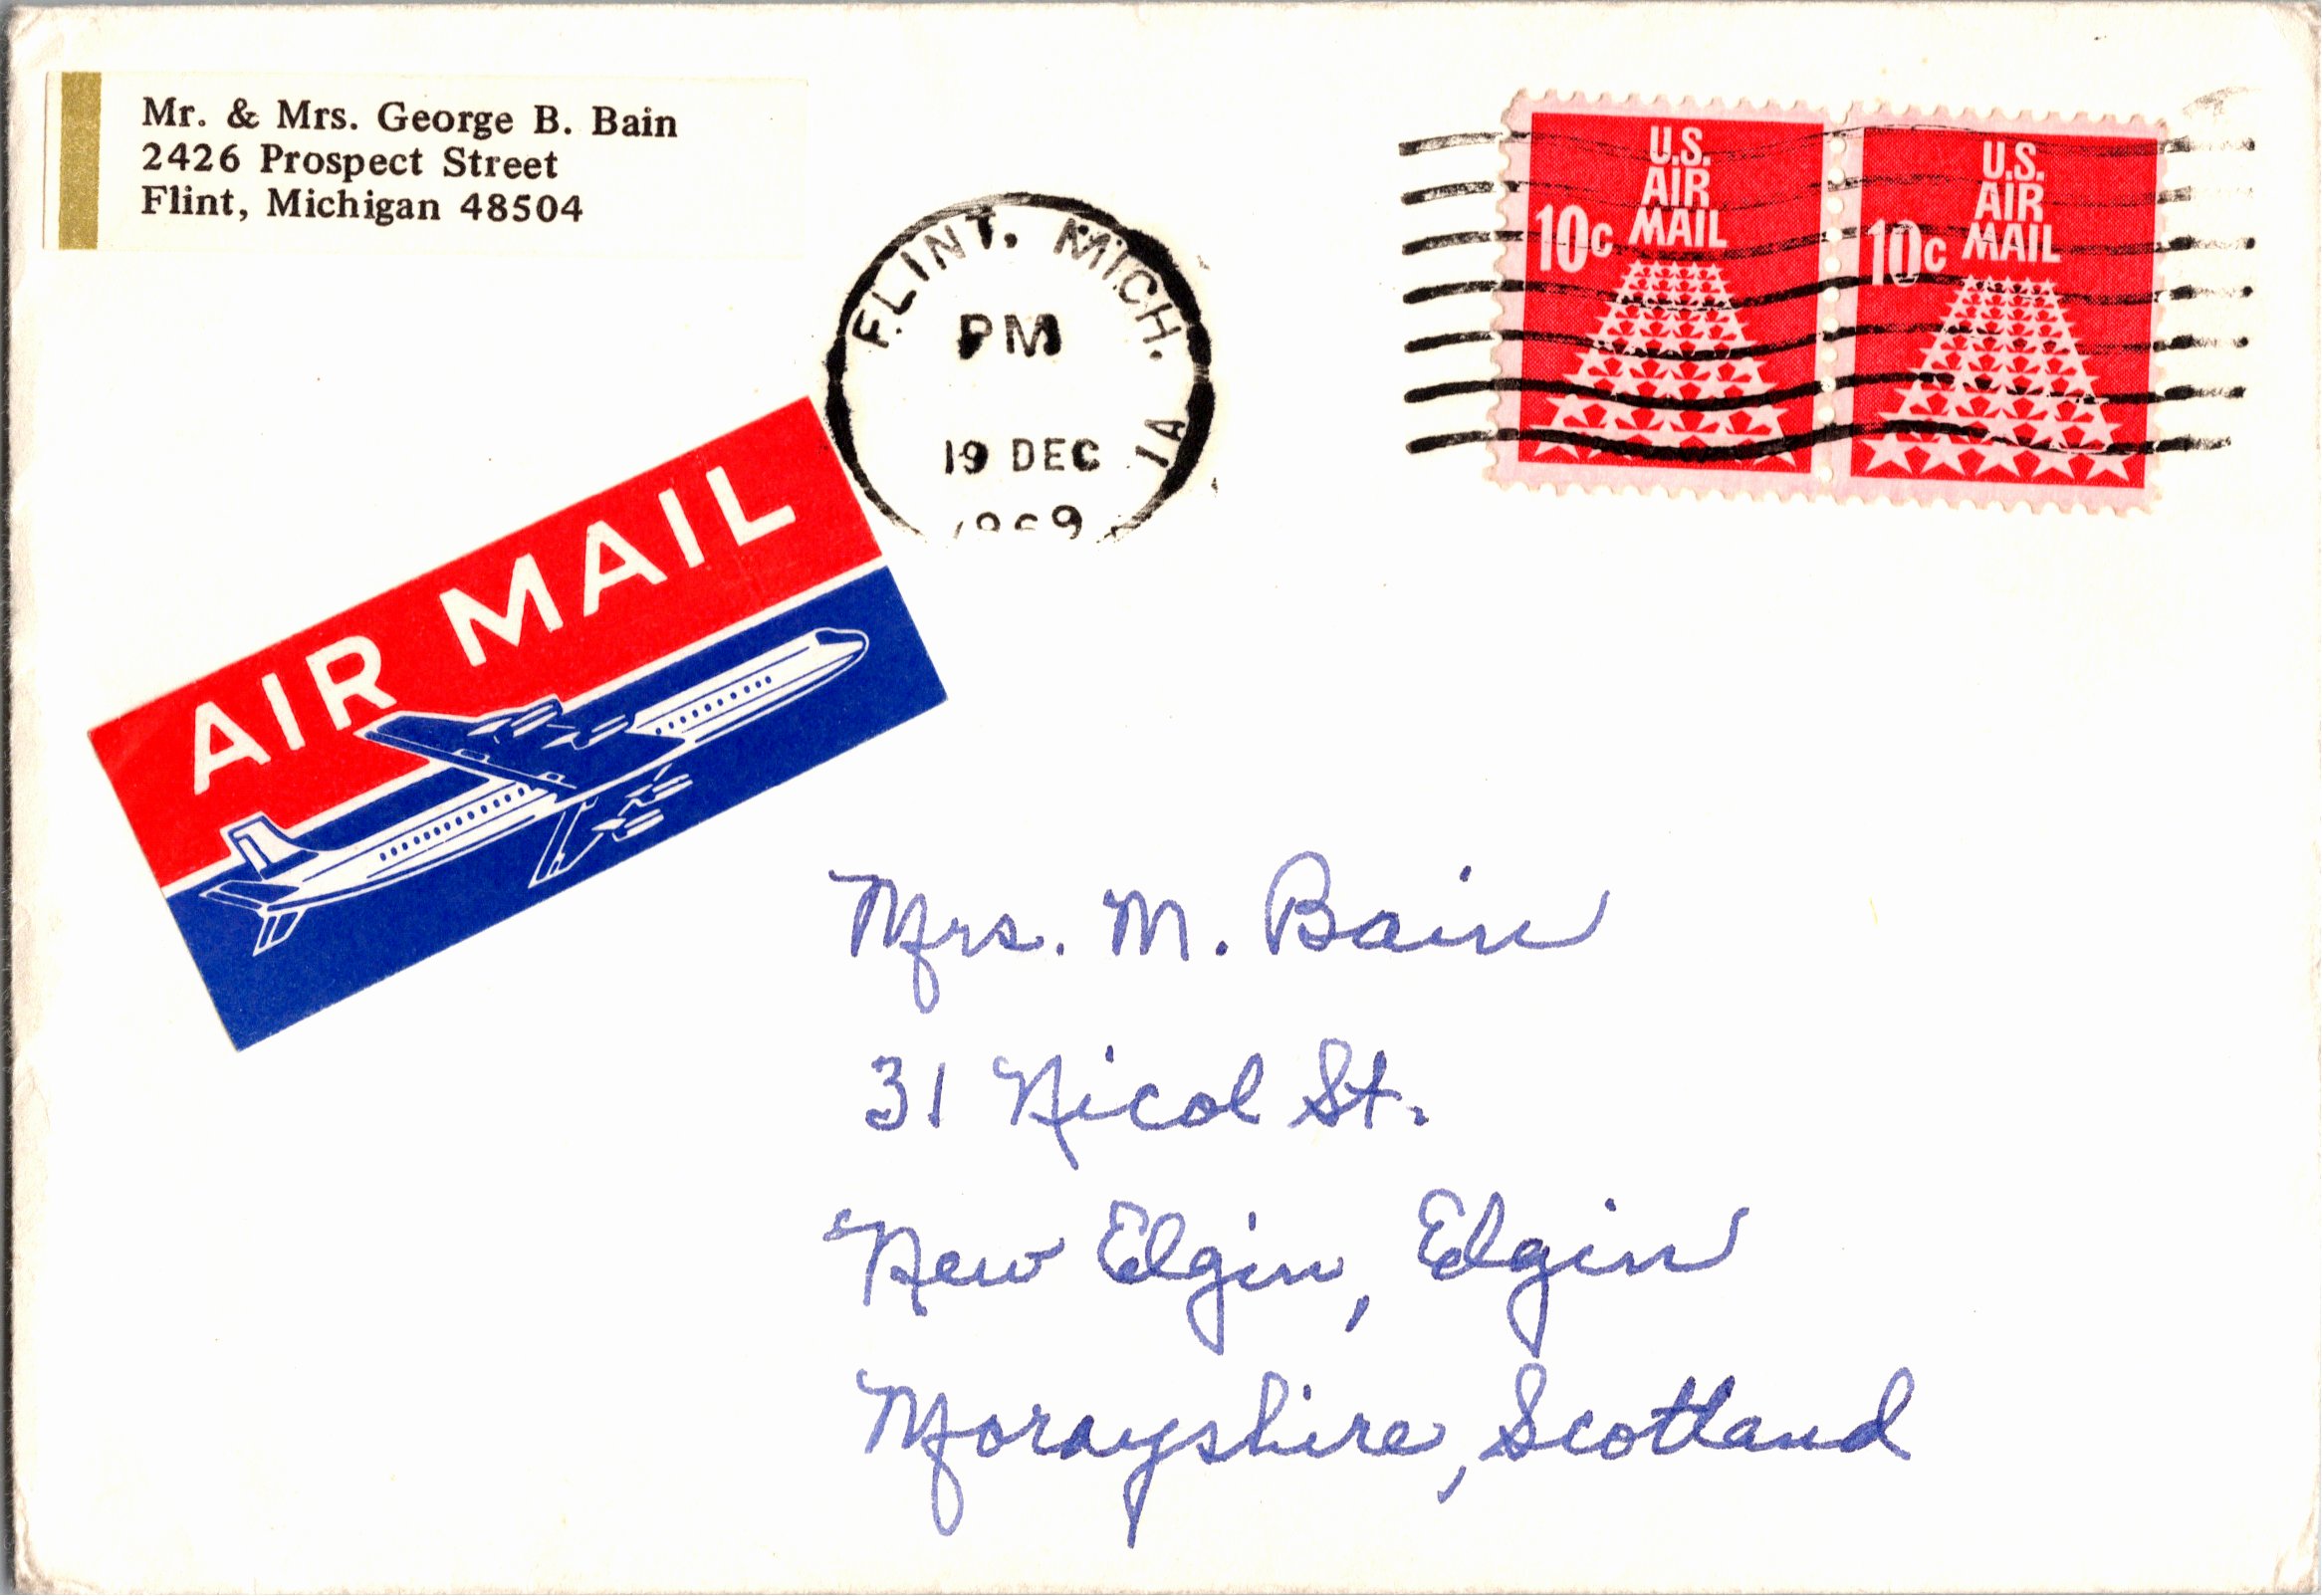 Mr. & Mrs. George B. Bain
2426 Prospect Street
Flint, Michigan 48504
FLINT, MICH.
PM
1A
19 DEC
1969
U.S.
AIR
MAIL
10c
U.S.
AIR
MAIL
10c
AIR MAIL
Mrs. M. Bain
31 Nicol St.
New Elgin, Elgin
Morayshire, Scotland